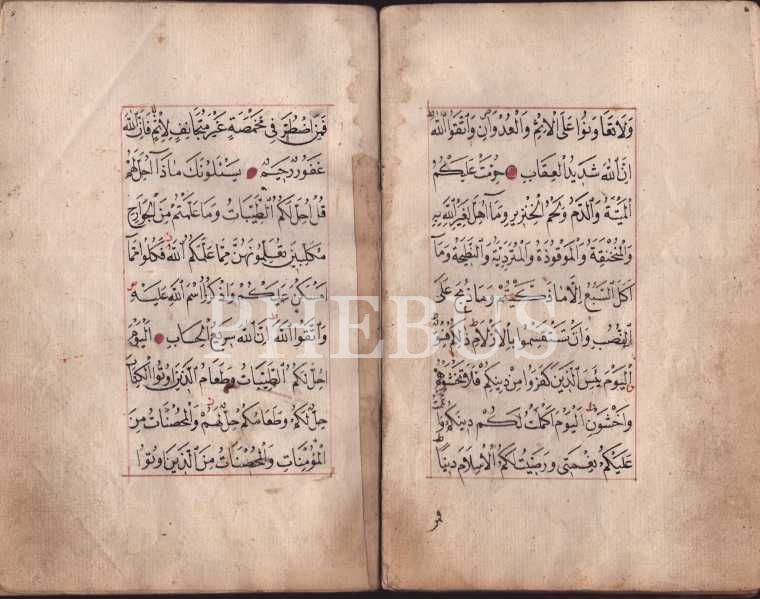 وَلَا تَعَاوَنُوا عَلَى الْاِثْمِ وَالْعُدْوَانِ وَاتَّقُوا اللّٰهَ
اِنَّ اللّٰهَ شَدِيدُ الْعِقَابِ حُرِّمَتْ عَلَيْكُمُ
الْمَيْتَةُ وَالدَّمُ وَلَحْمُ الْخِنْزِيرِ وَمَا اُهِلَّ لِغَيْرِ اللّٰهِ بِهِ
وَالْمُنْخَنِقَةُ وَالْمَوْقُوذَةُ وَالْمُتَرَدِّيَةُ وَالنَّطِيحَةُ وَمَا
اَكَلَ السَّبُعُ اِلَّا مَا ذَكَّيْتُمْ وَمَا ذُبِحَ عَلَى
النُّصُبِ وَاَنْ تَسْتَقْسِمُوا بِالْاَزْلَامِ ذٰلِكُمْ فِسْقٌ
اَلْيَوْمَ يَئِسَ الَّذِينَ كَفَرُوا مِنْ دِينِكُمْ فَلَا تَخْشَوْهُمْ
وَاخْشَوْنِ اَلْيَوْمَ اَكْمَلْتُ لَكُمْ دِينَكُمْ
عَلَيْكُمْ نِعْمَتِي وَرَضِيتُ لَكُمُ الْاِسْلَامَ دِينًا
فمن
فَمَنِ اضْطُرَّ فِي مَخْمَصَةٍ غَيْرَ مُتَجَانِفٍ لِاِثْمٍ فَاِنَّ اللّٰهَ
غَفُورٌ رَحِيمٌ يَسْئَلُونَكَ مَاذَا اُحِلَّ لَهُمْ
قُلْ اُحِلَّ لَكُمُ الطَّيِّبَاتُ وَمَا عَلَّمْتُمْ مِنَ الْجَوَارِحِ
مُكَلِّبِينَ تُعَلِّمُونَهُنَّ مِمَّا عَلَّمَكُمُ اللّٰهُ فَكُلُوا مِمَّا
اَمْسَكْنَ عَلَيْكُمْ وَاذْكُرُوا اسْمَ اللّٰهِ عَلَيْهِ
وَاتَّقُوا اللّٰهَ اِنَّ اللّٰهَ سَرِيعُ الْحِسَابِ اَلْيَوْمَ
اُحِلَّ لَكُمُ الطَّيِّبَاتُ وَطَعَامُ الَّذِينَ اُوتُوا الْكِتَابَ
حِلٌّ لَكُمْ وَطَعَامُكُمْ حِلٌّ لَهُمْ وَالْمُحْصَنَاتُ مِنَ
الْمُؤْمِنَاتِ وَالْمُحْصَنَاتُ مِنَ الَّذِينَ اُوتُوا
PHEBUS